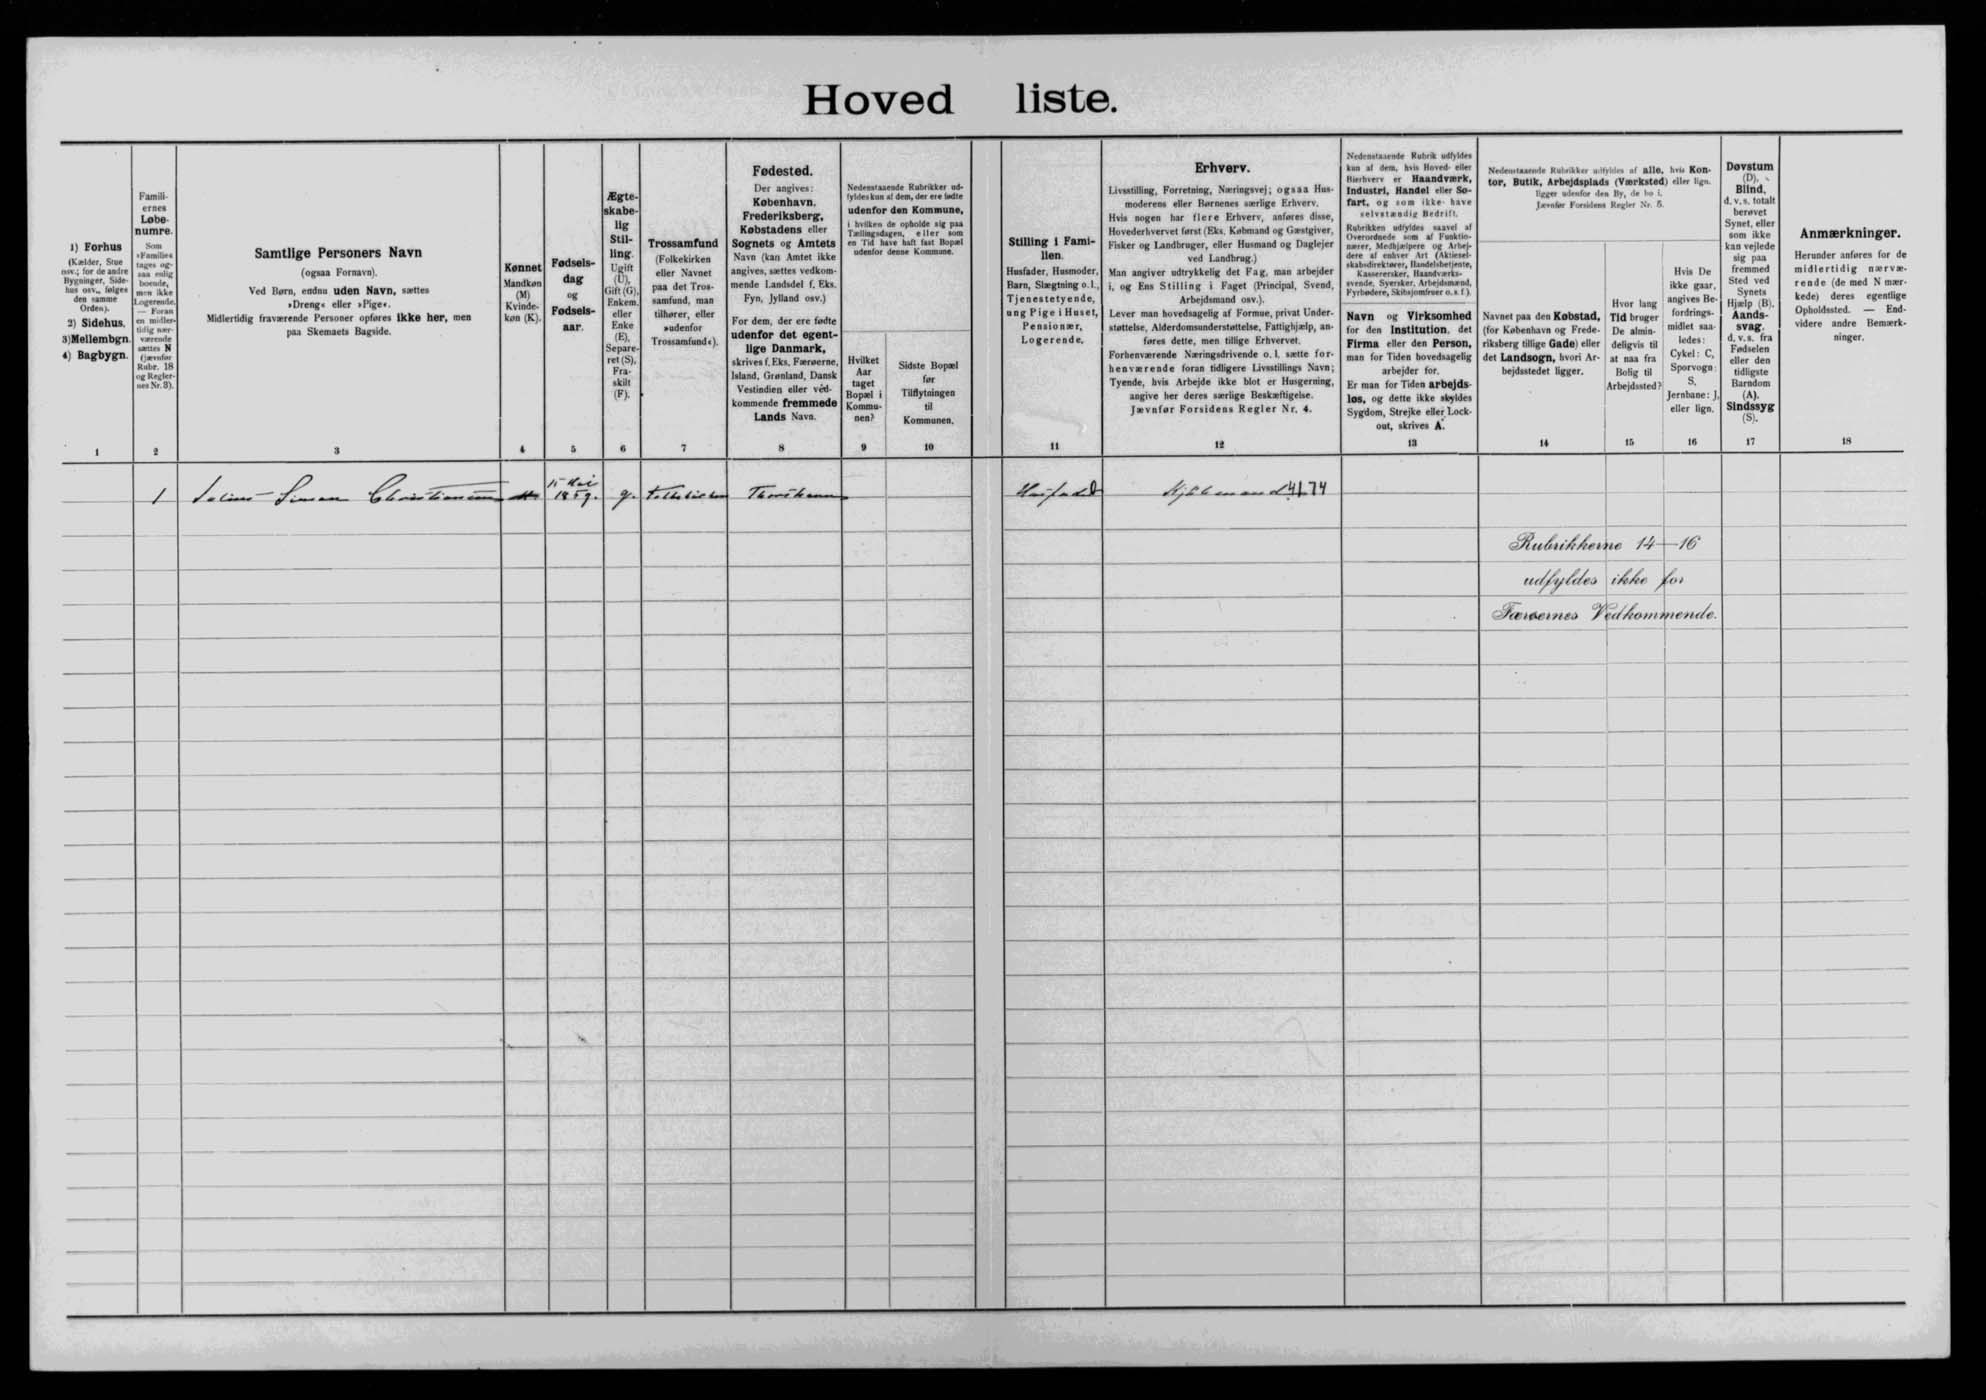 Hovedliste.
1) Forhus
(Kælder, Stue
osv.; for de andre
Bygninger, Side-
hus osv., følges
den samme
Orden).
2) Sidehus.
3) Mellembgn.
4) Bagbygn.
1
Famili-
ernes
Løbe-
numre.
Som
»Familie«
tages og-
saa enlig
boende,
men ikke
Logerende.
— Foran
en midler-
tidig nær-
værende
sættes N
(jævnfør
Rubr. 18
og Regler-
nes Nr. 3).
2
Samtlige Personers Navn
(ogsaa Fornavn).
Ved Børn, endnu uden Navn, sættes
»Dreng« eller »Pige«.
Midlertidig fraværende Personer opføres ikke her, men
paa Skemaets Bagside.
3
Kønnet
Mandkøn
(M)
Kvinde-
køn (K).
4
Fødsels-
dag
og
Fødsels-
aar.
5
Ægte-
skabe-
lig
Stil-
ling.
Ugift
(U),
Gift (G),
Enkem.
eller
Enke
(E),
Separe-
ret (S),
Fra-
skilt
(F).
6
Trossamfund
(Folkekirken
eller Navnet
paa det Tros-
samfund, man
tilhører, eller
»udenfor
Trossamfund«).
7
Fødested.
Der angives:
København,
Frederiksberg,
Købstadens eller
Sognets og Amtets
Navn (kan Amtet ikke
angives, sættes vedkom-
mende Landsdel f. Eks.
Fyn, Jylland osv.)
For dem, der ere fødte
udenfor det egent-
lige Danmark,
skrives f. Eks. Færøerne,
Island, Grønland, Dansk
Vestindien eller ved-
kommende fremmede
Lands Navn.
8
Nedenstaaende Rubrikker ud-
fyldes kun af dem, der ere fødte
udenfor den Kommune,
i hvilken de opholde sig paa
Tællingsdagen, eller som
en Tid have haft fast Bopæl
udenfor denne Kommune.
Hvilket
Aar
taget
Bopæl i
Kommu-
nen?
9
Sidste Bopæl
før
Tilflytningen
til
Kommunen.
10
Stilling i Fami-
lien.
Husfader, Husmoder,
Barn, Slægtning o.l.,
Tjenestetyende,
ung Pige i Huset,
Pensionær,
Logerende.
11
Erhverv.
Livsstilling, Forretning, Næringsvej; ogsaa Hus-
moderens eller Børnenes særlige Erhverv.
Hvis nogen har flere Erhverv, anføres disse,
Hovederhvervet først (Eks. Købmand og Gæstgiver,
Fisker og Landbruger, eller Husmand og Daglejer
ved Landbrug.)
Man angiver udtrykkelig det Fag, man arbejder
i, og Ens Stilling i Faget (Principal, Svend,
Arbejdsmand osv.).
Lever man hovedsagelig af Formue, privat Under-
støttelse, Alderdomsunderstøttelse, Fattighjælp, an-
føres dette, men tillige Erhvervet.
Forhenværende Næringsdrivende o. l. sætte for-
henværende foran tidligere Livsstillings Navn;
Tyende, hvis Arbejde ikke blot er Husgerning,
angive her deres særlige Beskæftigelse.
Jævnfør Forsidens Regler Nr. 4.
12
Nedenstaaende Rubrik udfyldes
kun af dem, hvis Hoved- eller
Bierhverv er Haandværk,
Industri, Handel eller Sø-
fart, og som ikke have
selvstændig Bedrift.
Rubrikken udfyldes saavel af
Overordnede som af Funktio-
nærer, Medhjælpere og Arbej-
dere af enhver Art (Aktiesel-
skabsdirektører, Handelsbetjente,
Kasserersker, Haandværks-
svende, Syersker, Arbejdsmænd,
Fyrbødere, Skibsjomfruer o. s. f.).
Navn og Virksomhed
for den Institution, det
Firma eller den Person,
man for Tiden hovedsagelig
arbejder for.
Er man for Tiden arbejds-
løs, og dette ikke skyldes
Sygdom, Strejke eller Lock-
out, skrives A.
13
Nedenstaaende Rubrikker udfyldes af alle, hvis Kon-
tor, Butik, Arbejdsplads (Værksted) eller lign.
ligger udenfor den By, de bo i.
Jævnfør Forsidens Regler Nr. 5.
Navnet paa den Købstad,
(for København og Frede-
riksberg tillige Gade) eller
det Landsogn, hvori Ar-
bejdsstedet ligger.
14
Hvor lang
Tid bruger
De almin-
deligvis til
at naa fra
Bolig til
Arbejdssted?
15
Hvis De
ikke gaar,
angives Be-
fordrings-
midlet saa-
ledes:
Cykel: C,
Sporvogn:
S,
Jernbane: J,
eller lign.
16
Døvstum
(D),
Blind,
d. v. s. totalt
berøvet
Synet, eller
som ikke
kan vejlede
sig paa
fremmed
Sted ved
Synets
Hjælp (B).
Aands-
svag,
d. v. s. fra
Fødselen
eller den
tidligste
Barndom
(A).
Sindssyg
(S).
17
Anmærkninger.
Herunder anføres for de
midlertidig nærvæ-
rende (de med N mær-
kede) deres egentlige
Opholdssted. — End-
videre andre Bemærk-
ninger.
18
1 Simon Christiansen 15 Mai 1859. g. Folkekirken Thorshavn Husfader 4174
Rubrikkerne 14-16
udfyldes ikke for
Færøernes Vedkommende.